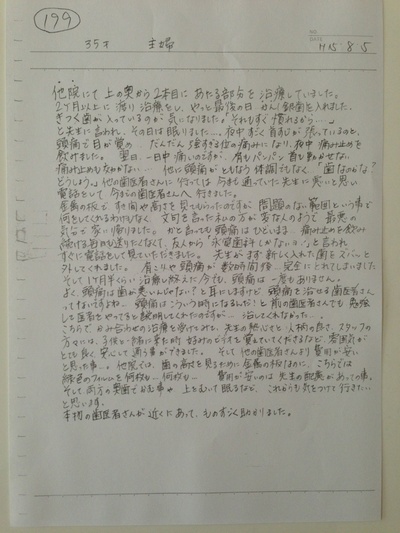 199
35才 主婦
NO.
DATE H15 8・5
他院にて上の奥から2本目にあたる部分を治療していました。
2ヶ月以上に渡り治療をし、やっと最後の日 銀歯を入れました。
きつく歯が入っているのが気になりました。「それもすぐ慣れるから…」
と先生に言われ、その日は眠りました…夜中すごく首すじが張っているのと、
頭痛で目が覚め…だんだん強すぎる位の痛みになり、夜中痛み止めを
飲みました。翌日、一日中痛いのですが、肩もパンパン首も動かせない。
痛み止めもきかない…他に頭痛がともなう体調でもなく「歯なのかな?
どうしよう。」他の歯医者さんに行っては今まで通っていた先生に悪いと思い
電話をして、今までの歯医者さんへ行きました。
金属の板ですき間や高さを見てもらったのですが 問題のない範囲という事で
何をしてくれるわけもなく 文句を言った私の方が変なんのようで 最悪の
気分で家に帰りました。かと言っても頭痛はひどいまま 痛み止めを飲み
続ける毎日も送りたくなくて、友人から「永電歯科しかないョ」と言われ
すぐに電話をして見ていただきました。先生がまず新しく入れた歯をスパッと
外してくれました。肩こりや頭痛が数時間後…完全にとれてしまいました
そして1ヶ月半くらい治療し終えた今でも、頭痛は一度もありません。
よく、頭痛は歯が悪いんじゃない?と耳にしますけど、頭痛を治せる歯医者さん
っていないですね…頭痛はこういう時になるんだ!と前の歯医者さんでも勉強
して医者をやってると説明してくれたのですが…治してくれなかった…。
こちらで かみ合わせの治療を受けてみて、先生の熱心さと人柄の良さ、スタッフの
方々には、子供と一緒に来た時好みのビデオを覚えていてくださるなど、雰囲気が
とても良く安心して通う事ができました。そして他の歯医者さんより費用が安い
と思った事…。他院では、歯の高さを見るために金属の板なのに、こちらでは
緑色のフィルムを何枚も…何枚も… 費用が安いのは先生の配慮があっての事。
そして両方の奥歯でかむ事や 上をむいて眠るなど、これからも気をつけて行きたい…
と思います。
本物の歯医者さんが近くにあって、ものすごく助かりました。